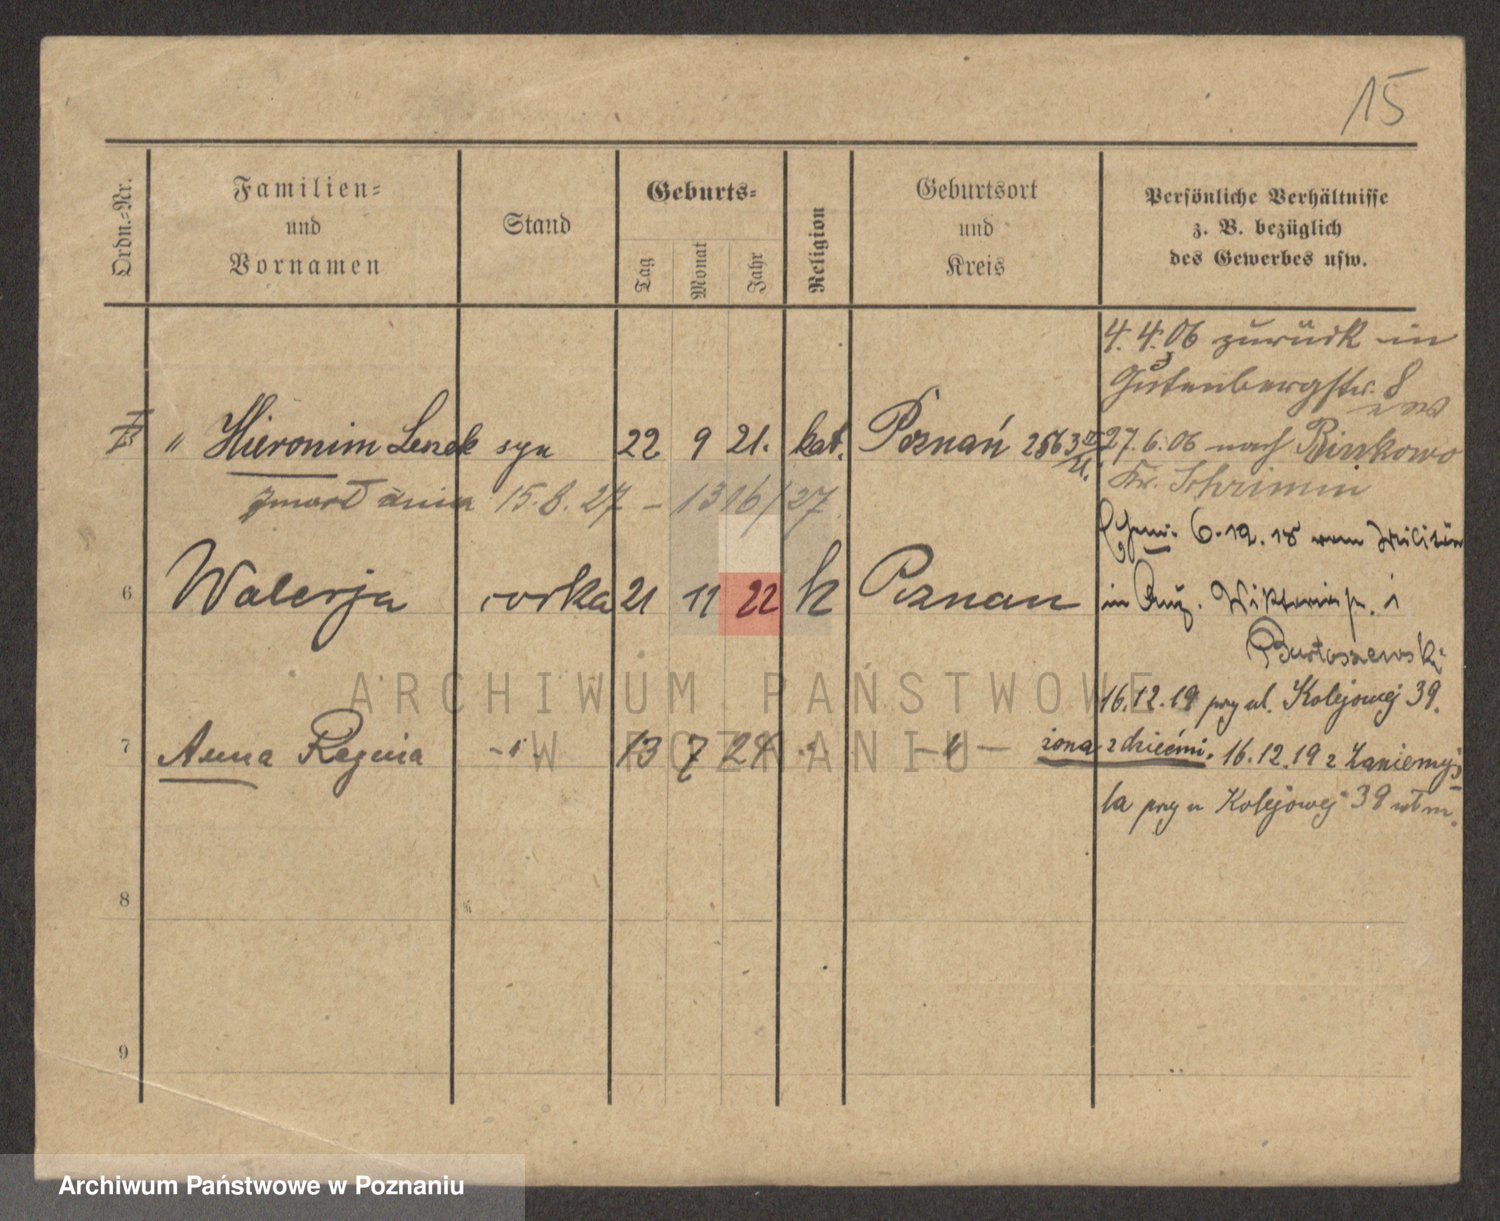 15
Ordn.=Nr.
Familien=
und
Vornamen
Stand
Geburts=
Tag
Monat
Jahr
Religion
Geburtsort
und
Kreis
Persönliche Verhältnisse
z. B. bezüglich
des Gewerbes usw.
4. 4. 06 zurück in
Gutenbergstr. 8
" Hieronim Leszek syn 22 9 21. kat. Poznań 2863
27. 6. 06 nach Binkowo
Kr. Schrimm
zmarł dnia 15. 8. 27 – 1316/27
6. 12. 18 vom Militär
6 Walerja córka 21 11 22 k Poznań
in Wiktoria i
Bartoszewski
16.12.19 przy ul. Kolejowej 39.
7 Anna Regina -"- 13 7 24 " -"-
żona z dziećmi. 16.12.19 z Zaniemyś
la przy u Kolejowej 39
8
9
ARCHIWUM PAŃSTWOWE
W POZNANIU
Archiwum Państwowe w Poznaniu